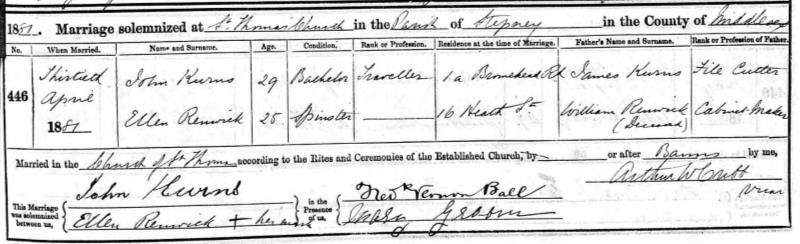 1881. Marriage solemnized at St Thomas Church in the Parish of Stepney in the County of Middlesex
No. When Married. Name and Surname. Age. Condition. Rank or Profession. Residence at the time of Marriage. Father's Name and Surname. Rank or Profession of Father.
446 Thirtieth April 1881 John Kurns 29 Bachelor Traveller 1a Bromehead Rd James Kurns File Cutter
Ellen Renwick 25 Spinster 16 Heath St William Renwick (Deceased) Cabinet Maker
Married in the Church of St Thomas according to the Rites and Ceremonies of the Established Church, by or after Banns by me,
Arthur W Cribb
Vicar
This Marriage was solemnized between us,
John Kurns
Ellen Renwick + her mark
in the Presence of us,
Fredk Vernon Ball
Groom